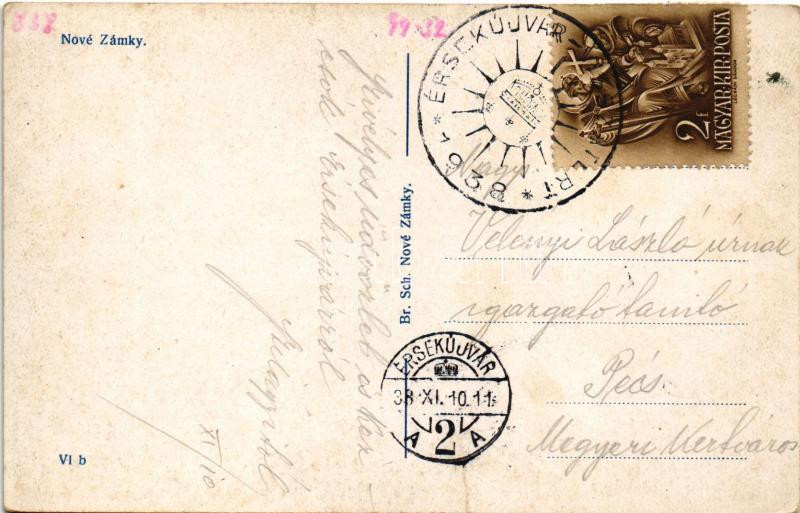 838
99-32
Nové Zámky.
1938 * ÉRSEKÚJVÁR
TÉRT *
2 f
MAGYAR KIR. POSTA
Szívélyes üdvözlet és kéz
csók Érsekújvárról
XI/10
Br. Sch. Nové Zámky.
Nagys.
Velenyi László úrnak
igazgató tanító
Pécs
Megyeri Kertváros
ÉRSEKÚJVÁR
38 XI. 10. 11
A 2 A
VI b